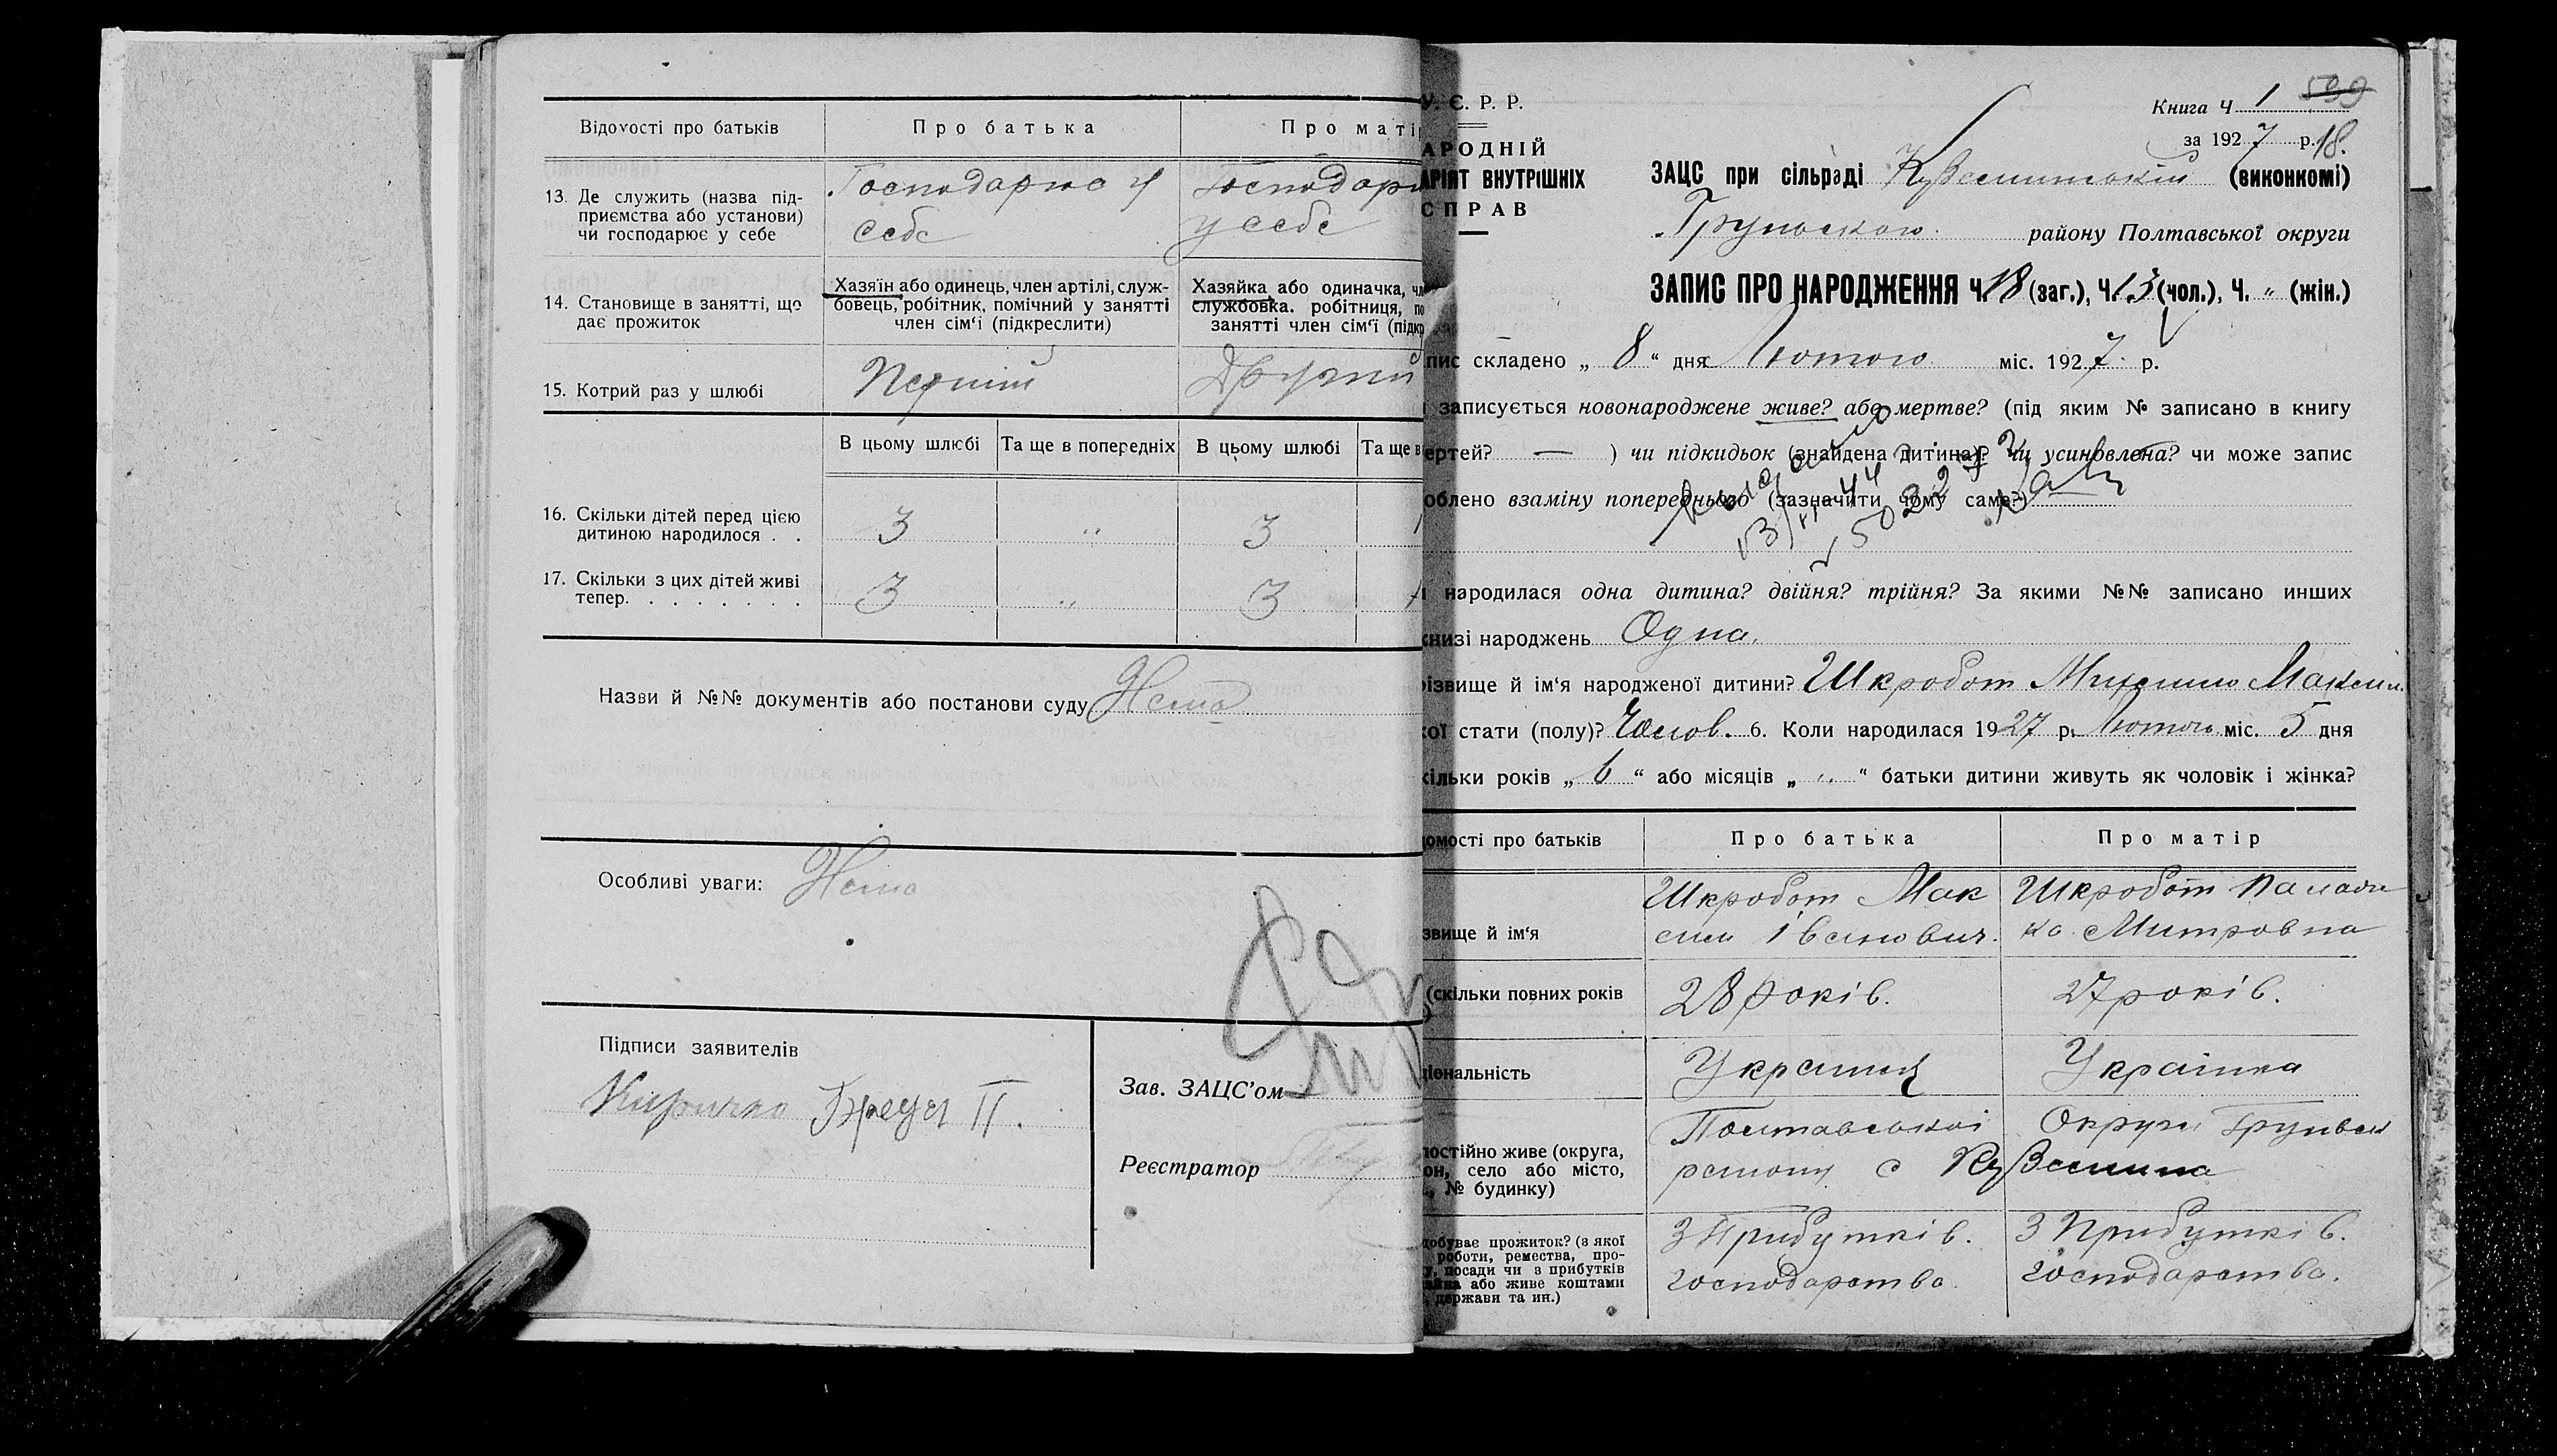 Відомості про батьків
Про батька
Про маті
13. Де служить (назва під-
приємства або установи)
чи господарює у себе
Господарює у
себе
Господарю
у себе
14. Становище в занятті, що
дає прожиток
Хазяїн або одинець, член артілі, служ-
бовець, робітник, помічний у занятті
член сім'ї (підкреслити)
Хазяйка або одиначка, чл
службовка, робітниця, по
занятті член сім'ї (підкр
15. Котрий раз у шлюбі
Перший
Другий
В цьому шлюбі
Та ще в попередніх
В цьому шлюбі
Та ще в
16. Скільки дітей перед цією
дитиною народилося . .
3
"
3
1
17. Скільки з цих дітей живі
тепер. . . . . . . .
3
"
3
1
Назви й №№ документів або постанови суду Нема
Особливі уваги: Нема
Підписи заявителів
Зав. ЗАЦС'ом
Реєстратор
У. С. Р. Р.
АРОДНІЙ
АРІЯТ ВНУТРІШНІХ
СПРАВ
Книга Ч 1 599
за 1927 р. 18.
ЗАЦС при сільраді (виконкомі)
Груньского району Полтавської округи
ЗАПИС ПРО НАРОДЖЕННЯ Ч. 18 (заг.), Ч. 13 (чол.), Ч. " (жін.)
пис складено „ 8 “ дня Лютого міс. 1927 р.
записується новонароджене живе? або мертве? (під яким № записано в книгу
ертей? — ) чи підкидьок (знайдена дитина)? чи усиновлена? чи може запис
облено взаміну попереднього (зазначити, чому саме?)
народилася одна дитина? двійня? трійня? За якими №№ записано инших
книзі народжень Одна.
різвище й ім'я народженої дитини? Шкробот Максим.
кої стати (полу)? Чолов. 6. Коли народилася 1927 р. Лютого міс. 5 дня
кільки років „ 6 “ або місяців „ " “ батьки дитини живуть як чоловік і жінка?
домості про батьків
Про батька
Про матір
звище й ім'я
Шкробот Мак
сим Іванович.
Шкробот Палаж
ка Митровна
(скільки повних років
28 років.
27 років.
ціональність
Українец
Українка
постійно живе (округа,
он, село або місто,
№ будинку)
Полтавської Округи Груньск
району с
добуває прожиток? (з якої
роботи, ремества, про-
у, посади чи з прибутків
або живе коштами
держави та ин.)
З Прибутків.
господарства.
З Прибутків.
господарства.